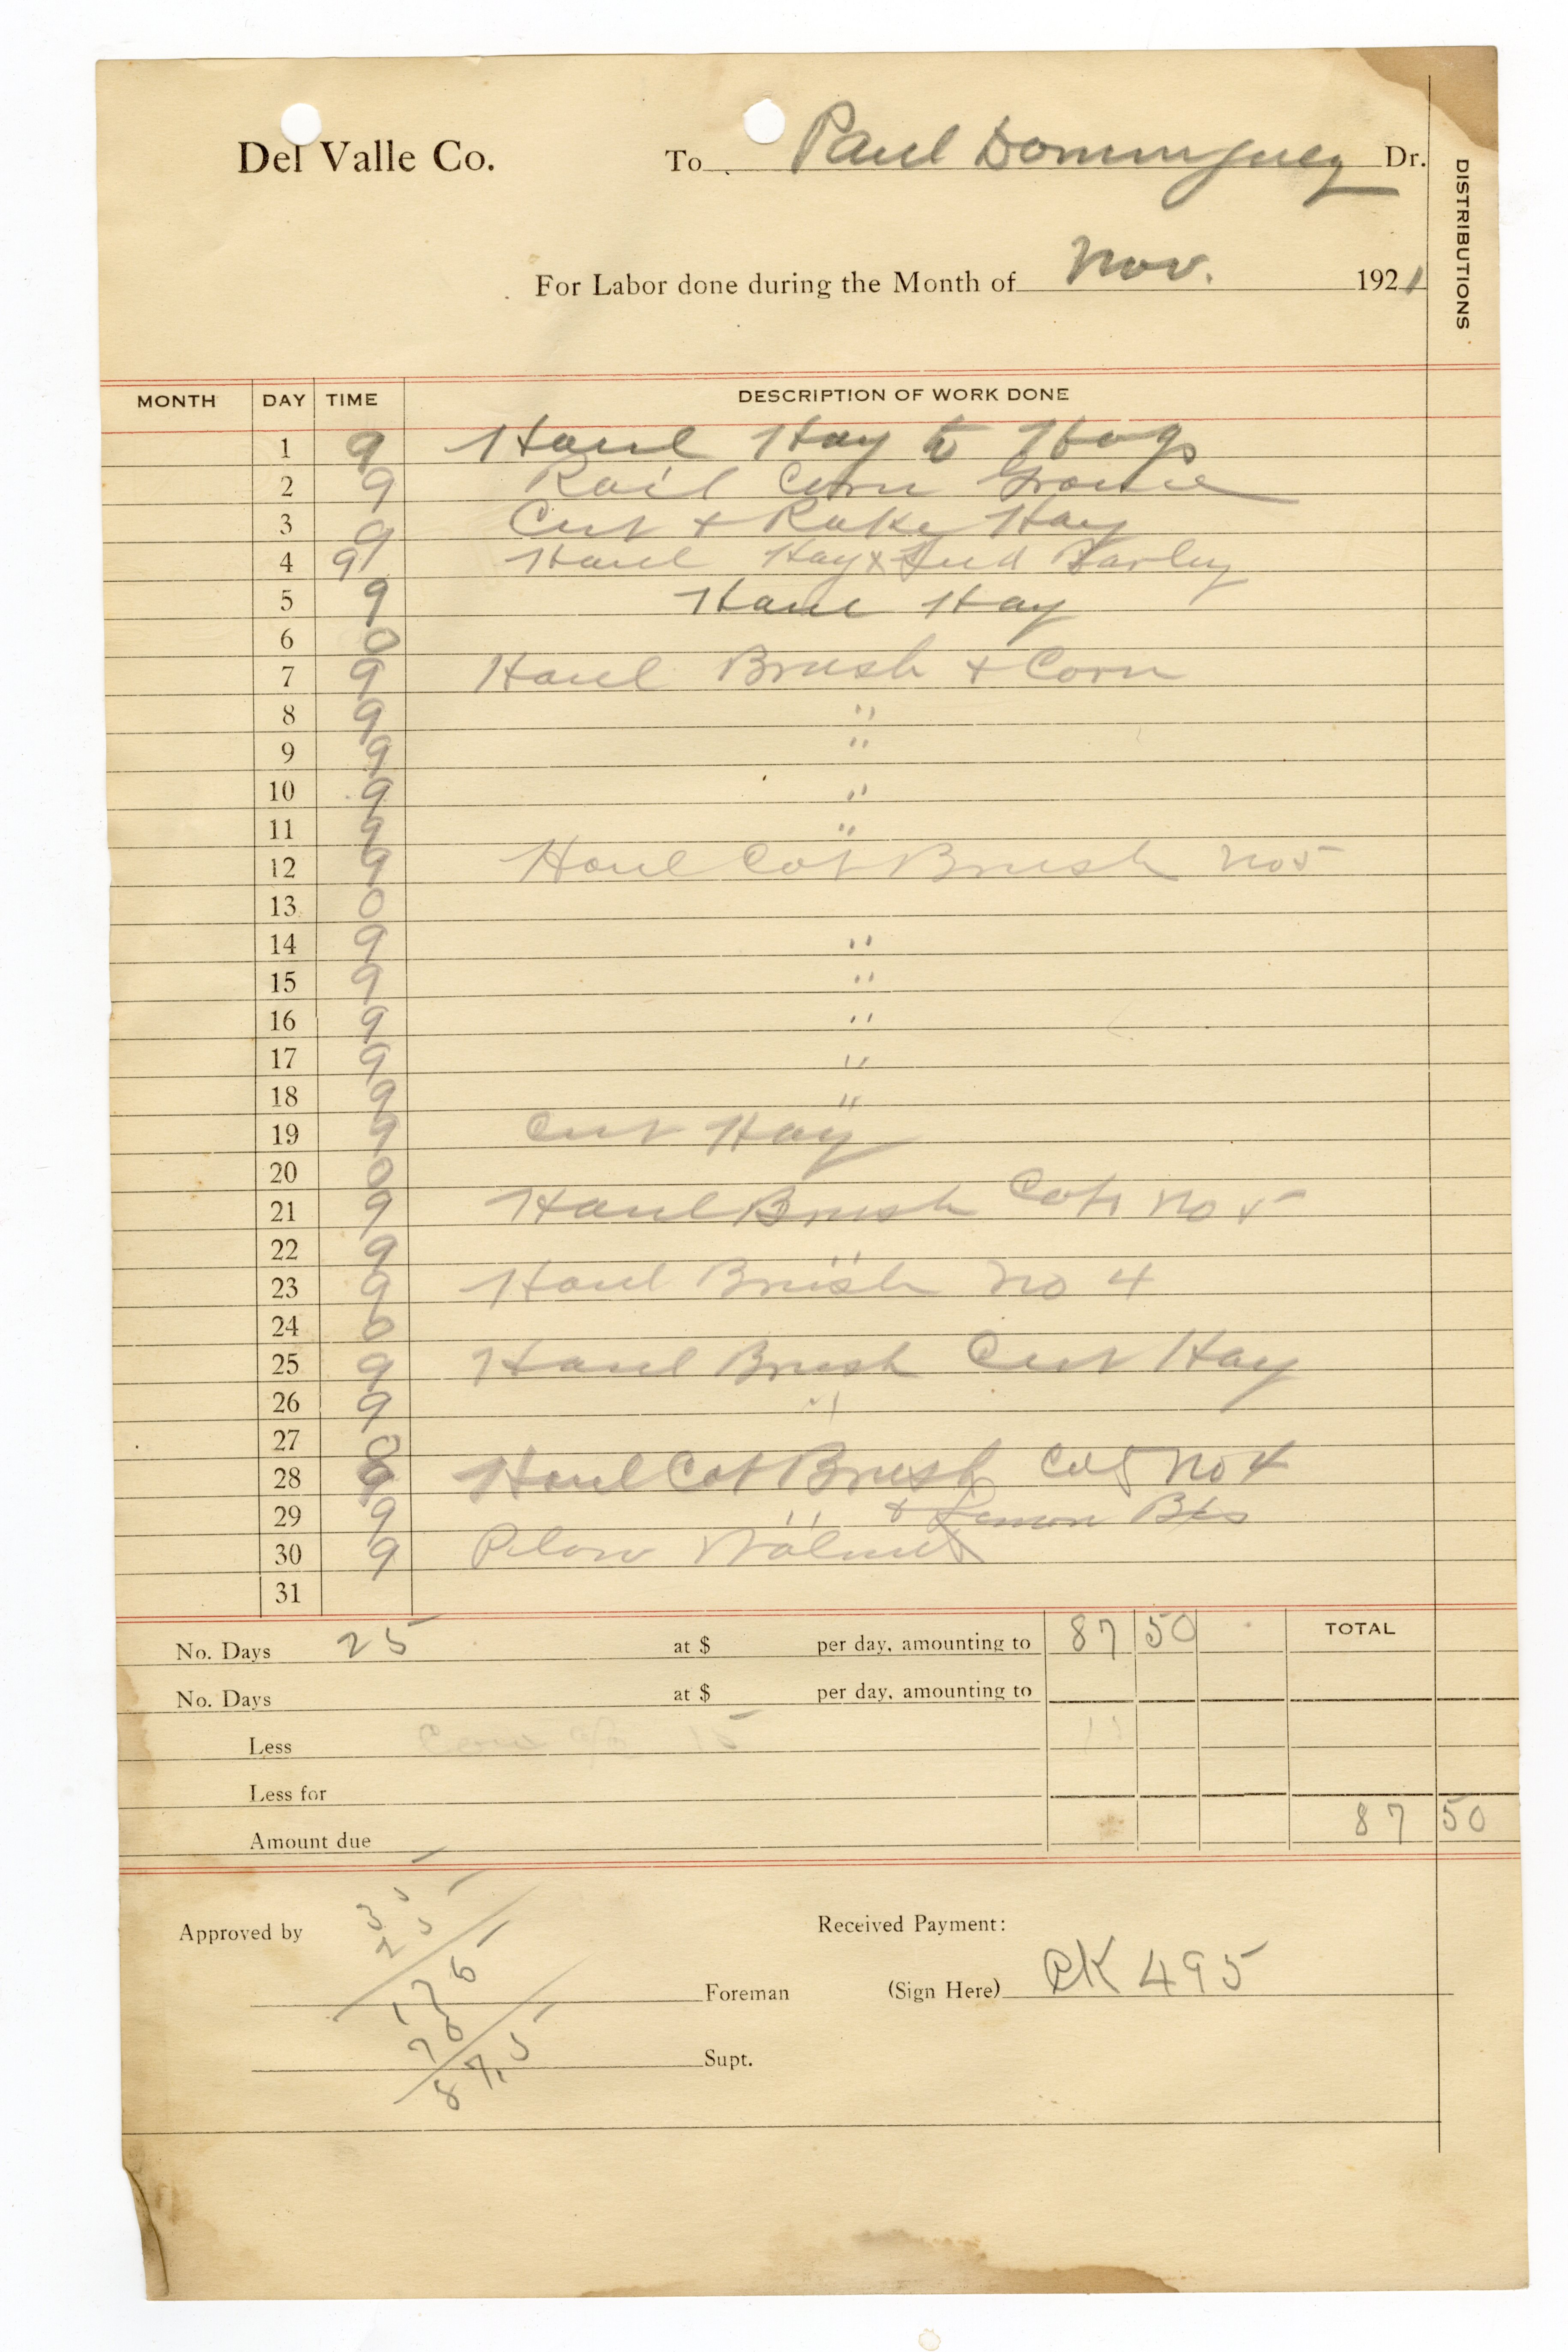 Del Valle Co. To Paul Dominguez Dr.
DISTRIBUTIONS
For Labor done during the Month of Nov. 1921
MONTH DAY TIME DESCRIPTION OF WORK DONE
1 9 Haul Hay to Hogs
2 9 Rail Corn
3 9 Cut + Rake Hay
4 9 Haul Hay & Barley
5 9 Haul Hay
6 0
7 9 Haul Brush + Corn
8 9 "
9 9 "
10 9 "
11 9 "
12 9 Haul Cot Brush No 5
13 0
14 9 "
15 9 "
16 9 "
17 9 "
18 9 "
19 9 Cut Hay
20 0
21 9 Haul Brush Cots No 5
22 9 "
23 9 Haul Brush No 4
24 0
25 9 Haul Brush Cut Hay
26 9 "
27 0
28 9 Haul Cot Brush Cot No 4
29 9 " + Lemon Bxs
30 9 Plow Walnuts
31
No. Days 25 at $ per day, amounting to 87 50 TOTAL
No. Days at $ per day, amounting to
Less 15
Less for
Amount due 87 50
35
25
175
70
87.5
Approved by Received Payment:
Foreman (Sign Here) CK 495
Supt.